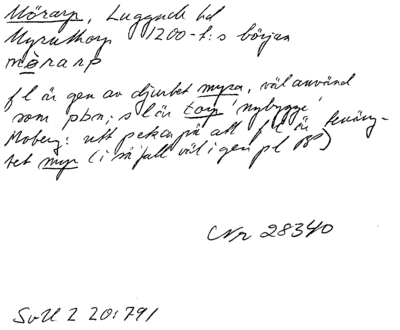 Mörarp, Luggude hd
Myruthorp 1200-t:s början
mörarp
f l är gen av djurbet myra, väl använd
som pbn; s l är torp 'nybygge'
Moberg: utt pekar på att f l är
tet myr (i så fall väl i gen pl BP)
Nr 28340
SOU 2 20:791